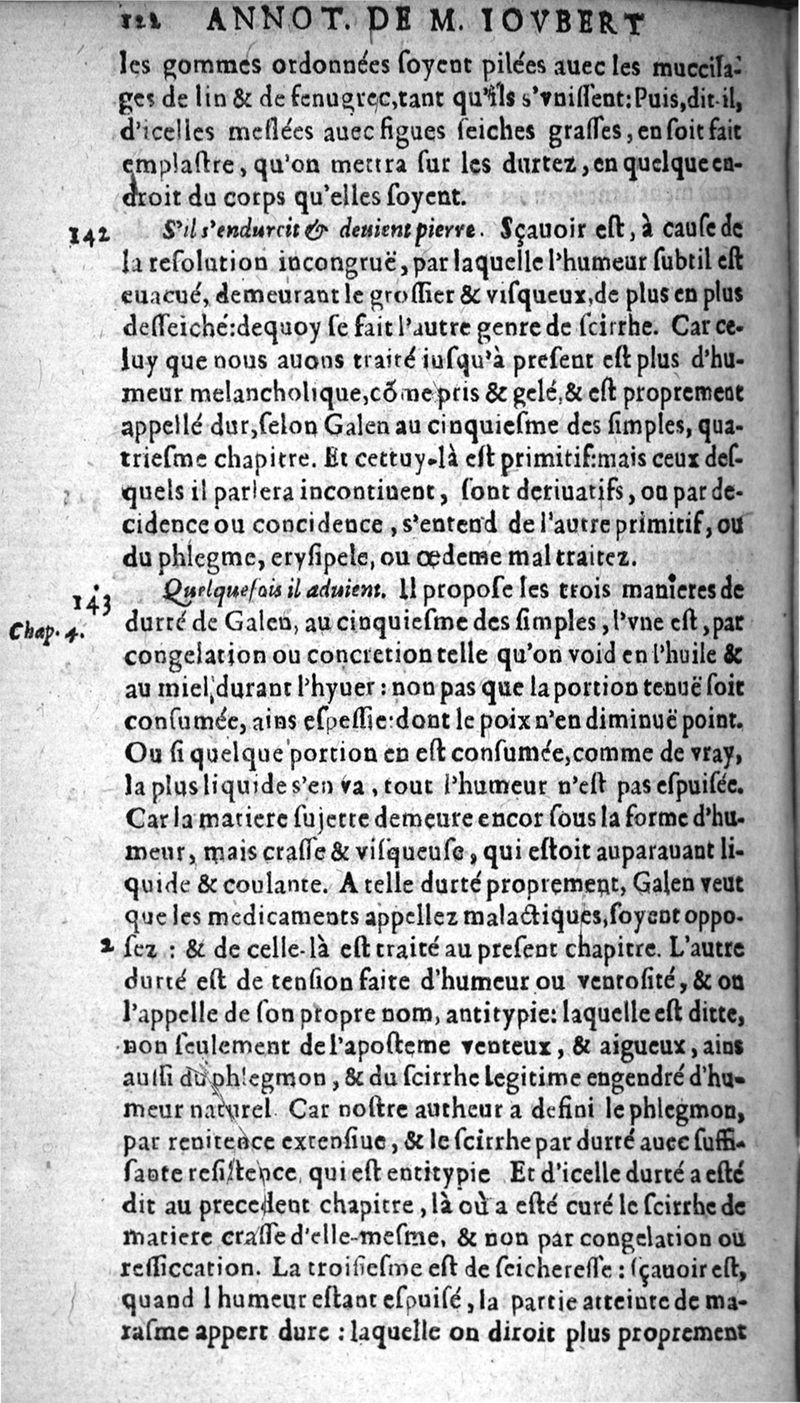 122 ANNOT. DE M. IOVBERT
les gommes ordonnées ſoyent pilées auec les muccila-
ges de lin & de fenugrec,tant qu'ils s'vniſſent: Puis,dit-il,
d'icelles meſlées auec figues ſeiches graſſes, en ſoit fait
emplaſtre, qu'on mettra ſur les durtez, en quelque en-
droit du corps qu'elles ſoyent.
142 S'il s'endurcit & deuient pierre. Sçauoir eſt, à cauſe de
la reſolution incongruë, par laquelle l'humeur ſubtil eſt
euacué, demeurant le groſſier & viſqueux,de plus en plus
deſſeiché:dequoy ſe fait l'autre genre de ſcirrhe. Car ce-
luy que nous auons traité iuſqu'à preſent eſt plus d'hu-
meur melancholique,cõme pris & gelé,& eſt proprement
appellé dur,ſelon Galen au cinquieſme des ſimples, qua-
trieſme chapitre. Et cettuy-là eſt primitif:mais ceux deſ-
quels il parlera incontinent, ſont deriuatifs, ou par de-
cidence ou concidence, s'entend de l'autre primitif, ou
du phlegme, eryſipele, ou œdeme mal traitez.
143 Quelquefois il aduient. Il propoſe les trois manieres de
Chap. 4. durté de Galen, au cinquieſme des ſimples, l'vne eſt, par
congelation ou concretion telle qu'on void en l'huile &
au miel,durant l'hyuer : non pas que la portion tenuë ſoit
conſumée, ains eſpeſſie:dont le poix n'en diminuë point.
Ou ſi quelque portion en eſt conſumée,comme de vray,
la plus liquide s'en va, tout l'humeur n'eſt pas eſpuiſée.
Car la matiere ſujette demeure encor ſous la forme d'hu-
meur, mais craſſe & viſqueuſe, qui eſtoit auparauant li-
quide & coulante. A telle durté proprement, Galen veut
que les medicaments appellez malactiques,ſoyent oppo-
2 ſez : & de celle-là eſt traité au preſent chapitre. L'autre
durté eſt de tenſion faite d'humeur ou ventoſité, & on
l'appelle de ſon propre nom, antitypie: laquelle eſt ditte,
non ſeulement de l'apoſteme venteux, & aigueux, ains
auſſi du phlegmon, & du ſcirrhe legitime engendré d'hu-
meur naturel. Car noſtre autheur a defini le phlegmon,
par renitence extenſiue, & le ſcirrhe par durté auec ſuffi-
ſante reſiſtence, qui eſt entitypie Et d'icelle durté a eſté
dit au precedent chapitre, là où a eſté curé le ſcirrhe de
matiere craſſe d'elle-meſme, & non par congelation ou
reſſiccation. La troiſieſme eſt de ſeichereſſe : ſçauoir eſt,
quand l humeur eſtant eſpuiſé, la partie atteinte de ma-
raſme appert dure : laquelle on diroit plus proprement